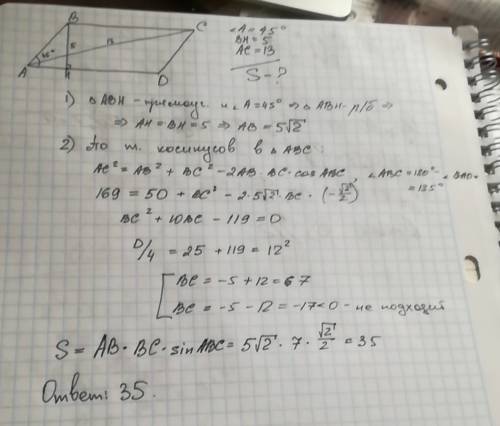 B
C
∠A = 45°
BH = 5
AC = 13
S - ?
45°
5
13
A
H
D
1) △ABH - прямоуг. и ∠A = 45° ⇒ △ABH - р/б ⇒
⇒ AH = BH = 5 ⇒ AB = 5√2
2) По т. косинусов в △ABC:
AC² = AB² + BC² - 2AB · BC · cos ABC, ∠ABC = 180° - ∠BAD =
= 135°
169 = 50 + BC² - 2 · 5√2 · BC · (-√2/2)
BC² + 10BC - 119 = 0
D/4 = 25 + 119 = 12²
BC = -5 + 12 = 7
BC = -5 - 12 = -17 < 0 - не подходит
S = AB · BC · sin ABC = 5√2 · 7 · √2/2 = 35
Ответ: 35.